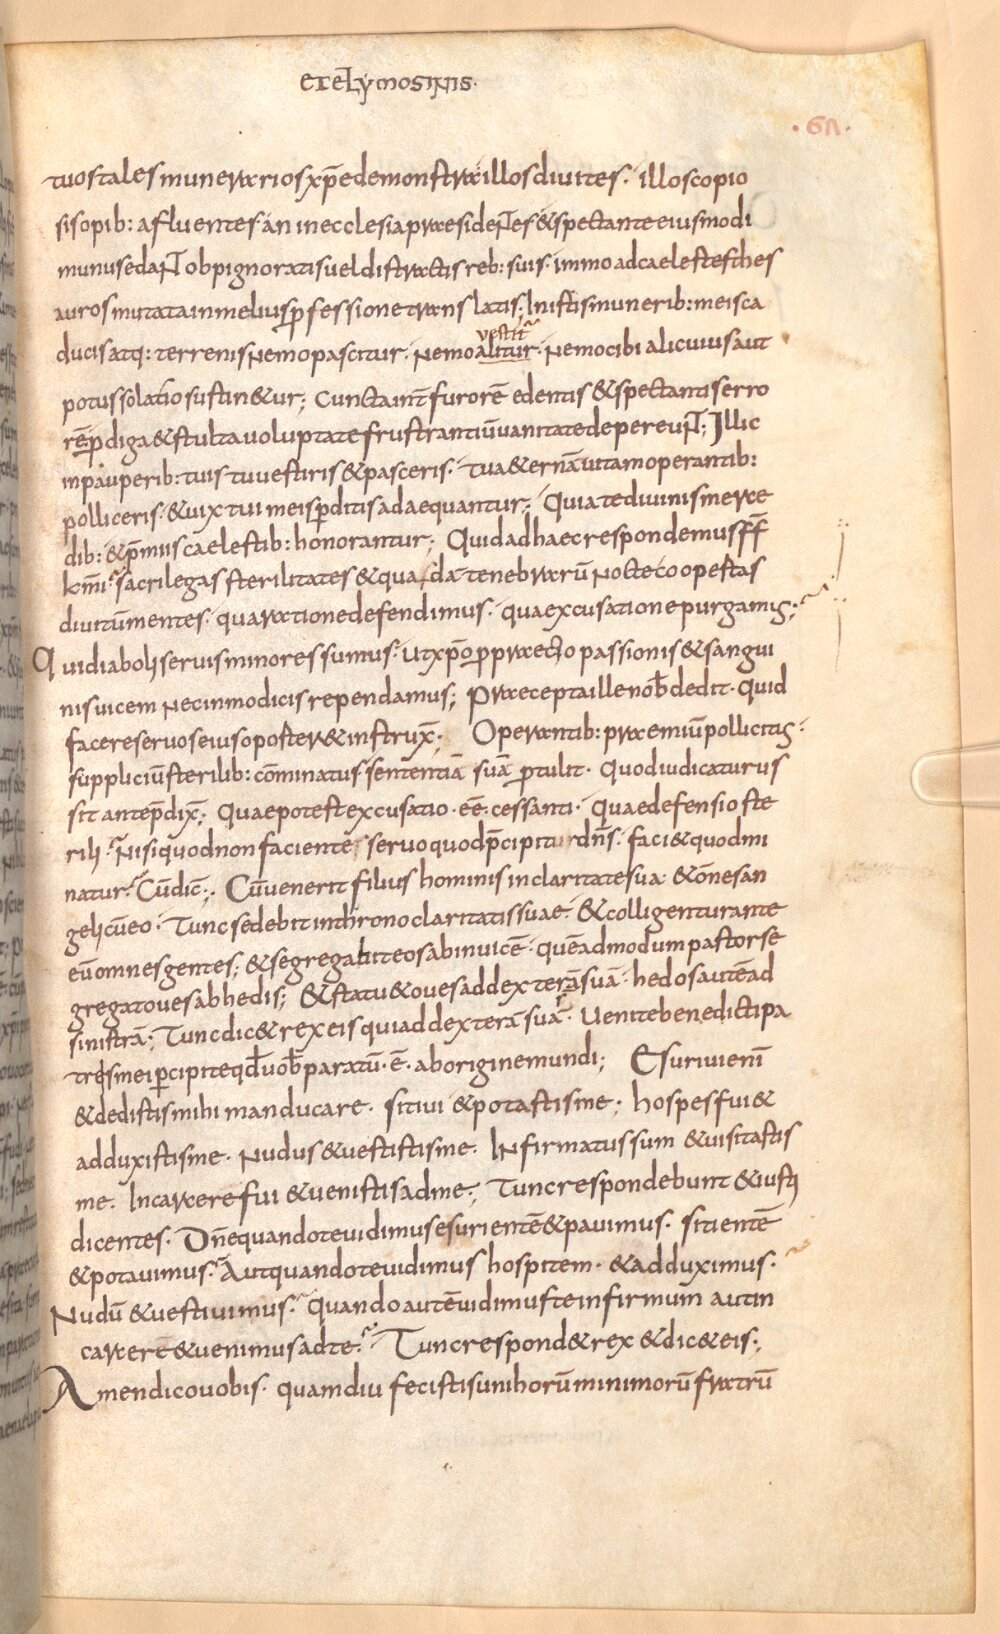 et elymosinis.
.61.
tuos tales munerarios xp̄e demonstra illos diuites. illos copio
sis opib: afluentes an in ecclesia praesidentes & spectante eiusmodi
munus edant obpignoratis uel distractis reb: suis. immo ad caelestes thes
auros mutata in melius p̄fessione translatis; In istis munerib: meis ca
ducis atq: terrenis nemo pascitur. nemo alitur. nemo cibi alicuius aut
uestit̄
potus solatio sustin&ur; Cuncta int̄ furorē edentis & spectantis erro
rē p̄diga & stulta uoluptate frustrantiū uanitate depereunt; Illic
in pauperib: tuis tu uestiris & pasceris. tu a&ernā uitam operantib:
polliceris. & uix tui meis p̄ditis adaequantur; Quia te diuinis merce
dib: & p̄miis caelestib: honorantur; Quid ad haec respondemus ff̄
km̄i sacrilega sterilitates & quadā tenebrarū nocte coopertas
diuitū mentes. qua ratione defendimus. qua excusatione purgamus;
Qui diaboli seruis minores sumus. ut xp̄o p̄ praetio passionis & sangui
nis uicem nec in modicis rependamus; Praecepta ille nob̄ dedit. quid
facere seruos eius oporter& instrux̄; Operantib: praemiū pollicitus.
suppliciū sterilib: cōminatus sententiā suā p̄tulit. quod iudicaturus
sit ante p̄dix̄; Quae potest excusatio. ēē. cessanti. quae defensio ste
rili. Nisi quod non faciente seruo quod p̄cipitur dn̄s. faci& quod mi
natur. Cū dic̄; Cū uenerit filius hominis in claritate sua & om̄es an
geli cū eo. Tunc sedebit in throno claritatis suae. & colligentur ante
eū omnes gentes; & segregabit eos ab inuicē. quē ad modum pastor se
gregat oues ab hedis; & statu& oues ad dexterā suā. hedos autē ad
sinistrā; Tunc dic& rex eis qui ad dexterā suā. Uenite benedicti pa
tres mei p̄cipite qd̄ uob̄ paratū. ē. ab origine mundi; Esuriui enī
& dedistis mihi manducare. sitiui & potastis me; hospes fui &
adduxistis me. Nudus & uestistis me. Infirmatus sum & uisitastis
me. In carcere fui & uenistis ad me; Tunc respondebunt & iusti
dicentes. Dn̄e quando te uidimus esurientē & pauimus. sitientē
& potauimus. Aut quando te uidimus hospitem. & adduximus.
Nudū & uestiuimus. quando autē uidimus te infirmum aut in
carcerē & uenimus ad te. Tunc respond& rex & dic& eis;
Amen dico uobis. quamdiu fecistis uni horū minimorū fratrū